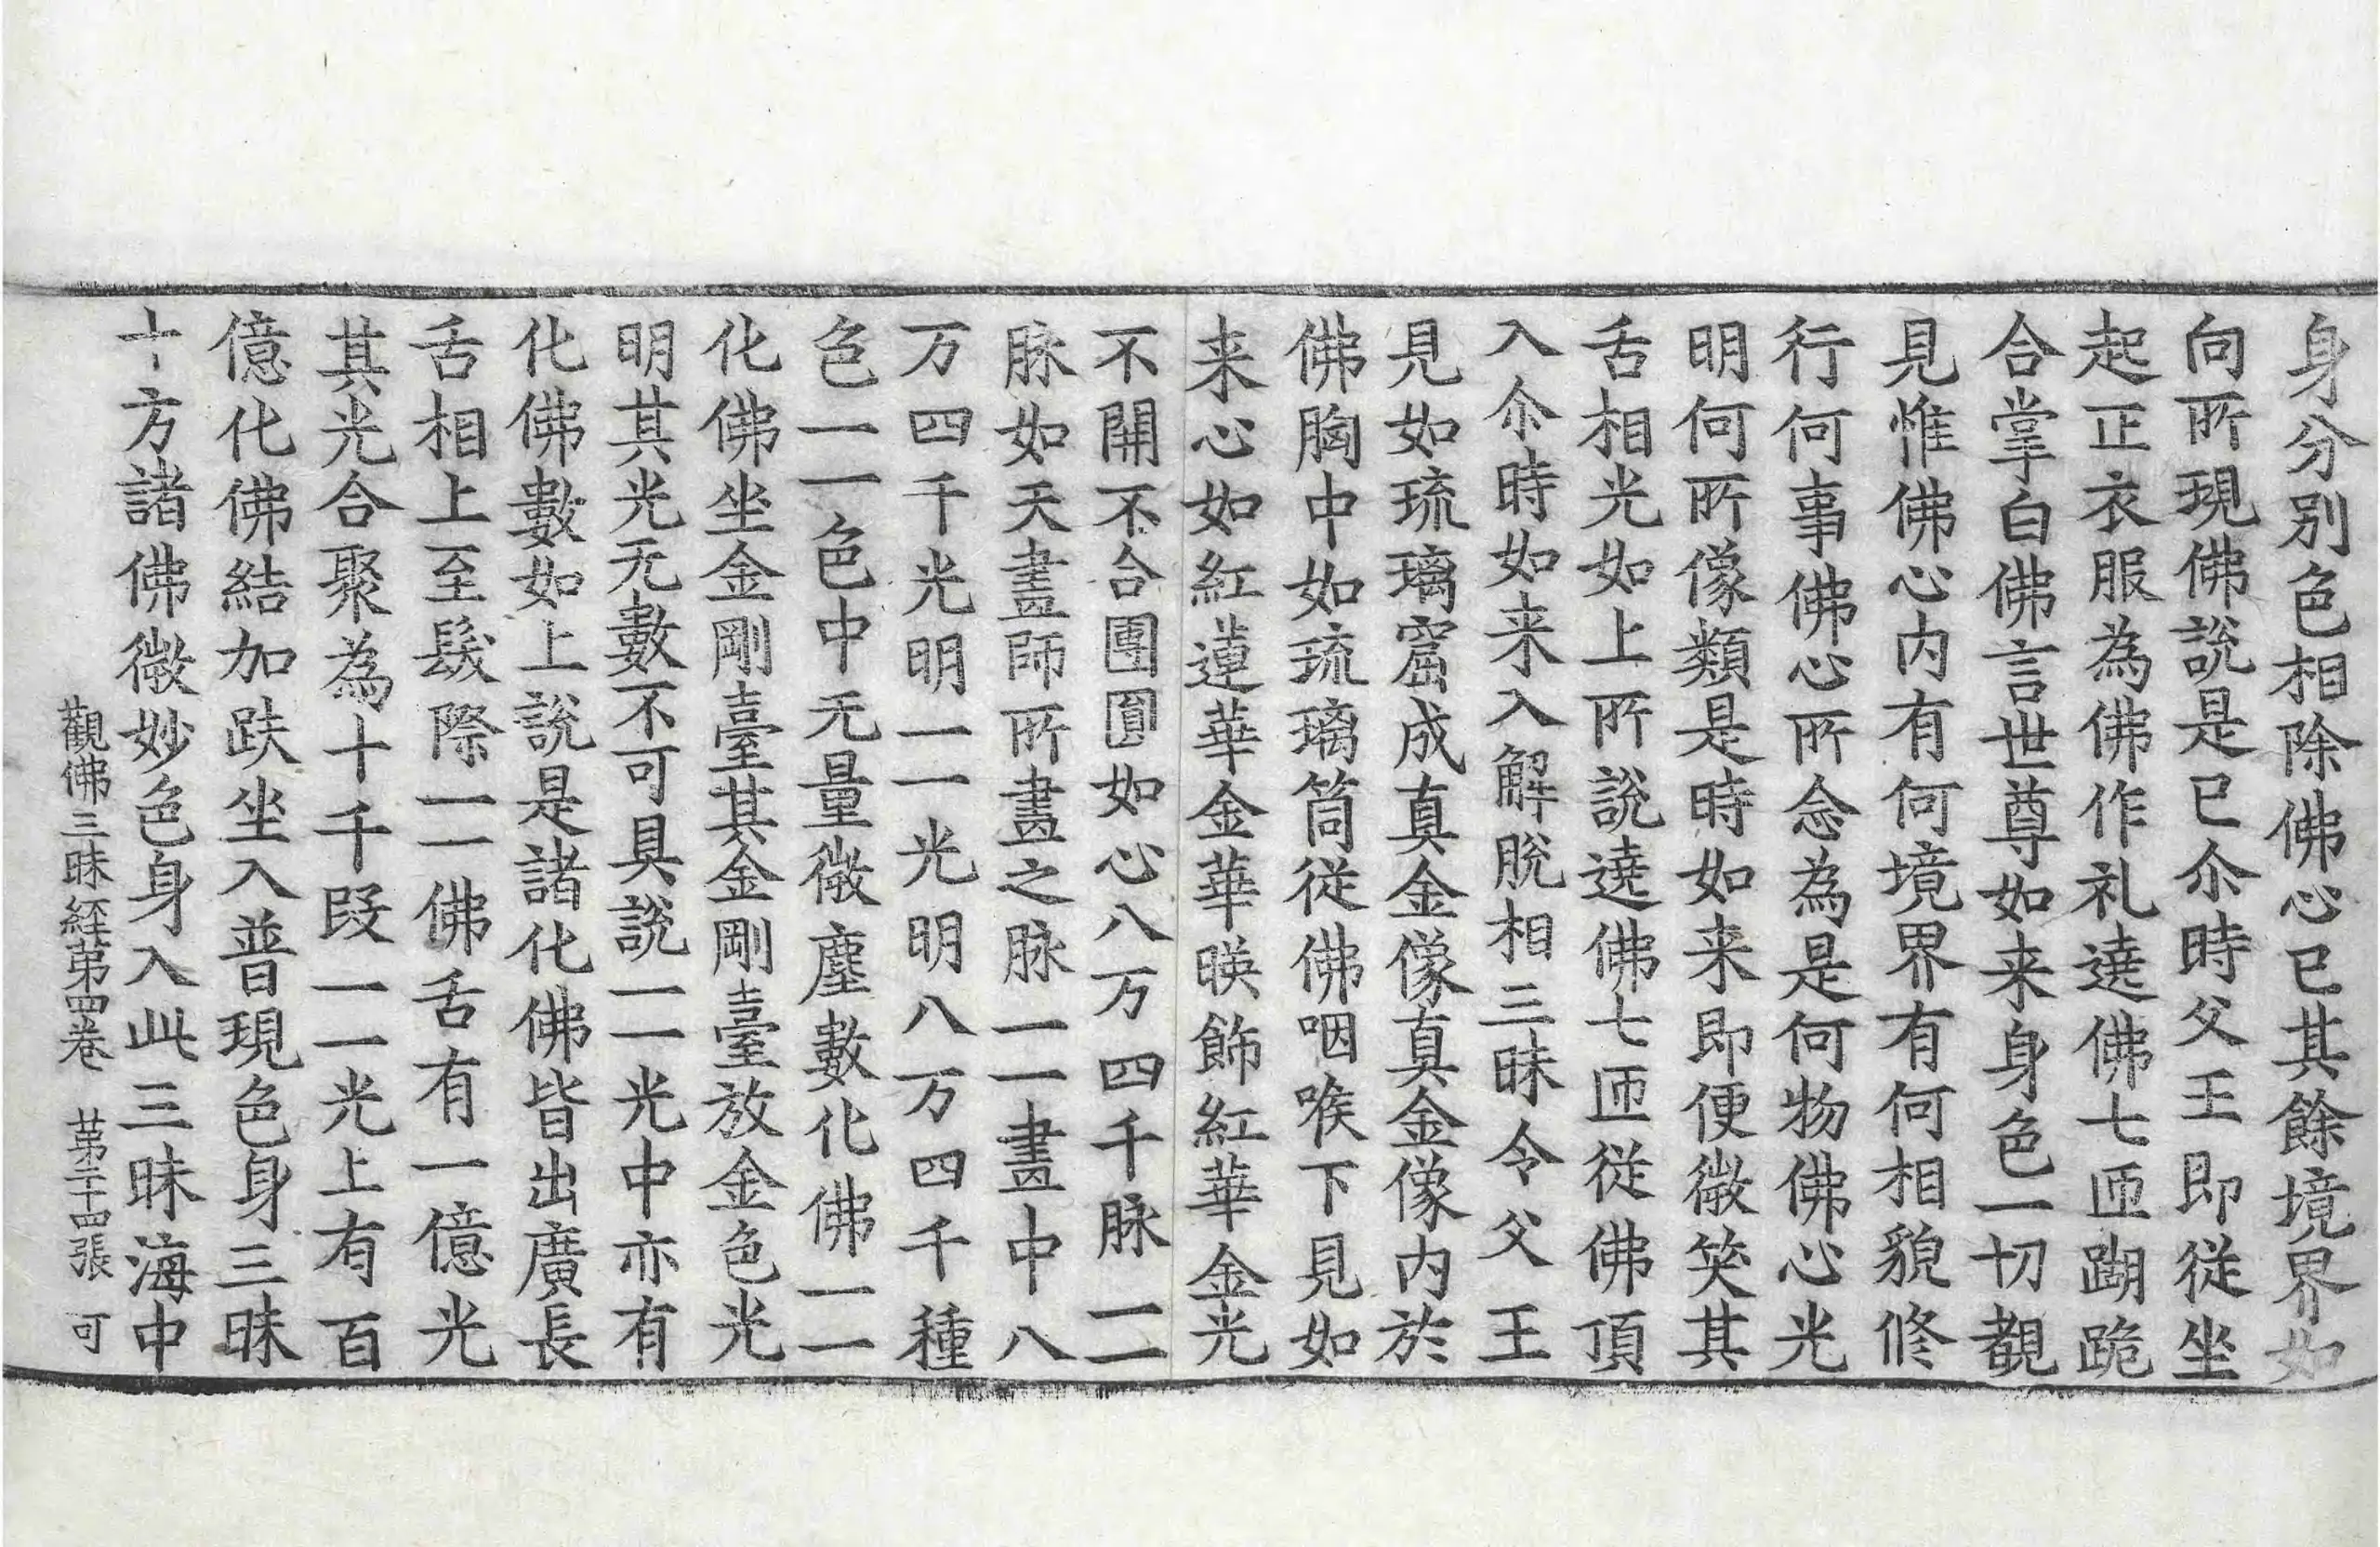 身分別色相除佛心已其餘境界如
向所現佛說是已尒時父王即從坐
起正衣服為佛作礼遶佛七匝蹋跪
合掌白佛言世尊如来身色一切覩
見惟佛心内有何境界有何相貌修
行何事佛心所念為是何物佛心光
明何所像類是時如来即便微笑其
舌相光如上所說遶佛七匝從佛頂
入尒時如来入解脫相三昧令父王
見如琉璃窟成真金像真金像内於
佛胸中如琉璃筒從佛咽喉下見如
来心如紅蓮華金華暎飾紅華金光
不開不合團圓如心八万四千脉一一
脉如天畫師所畫之脉一一畫中八
万四千光明一一光明八万四千種
色一一色中无量微塵數化佛一一
化佛坐金剛臺其金剛臺放金色光
明其光无數不可具說一一光中亦有
化佛數如上說是諸化佛皆出廣長
舌相上至髮際一一佛舌有一億光
其光合聚為十千段一一光上有百
億化佛結加趺坐入普現色身三昧
十方諸佛微妙色身入此三昧海中
觀佛三昧經第四卷 第二十四張 可